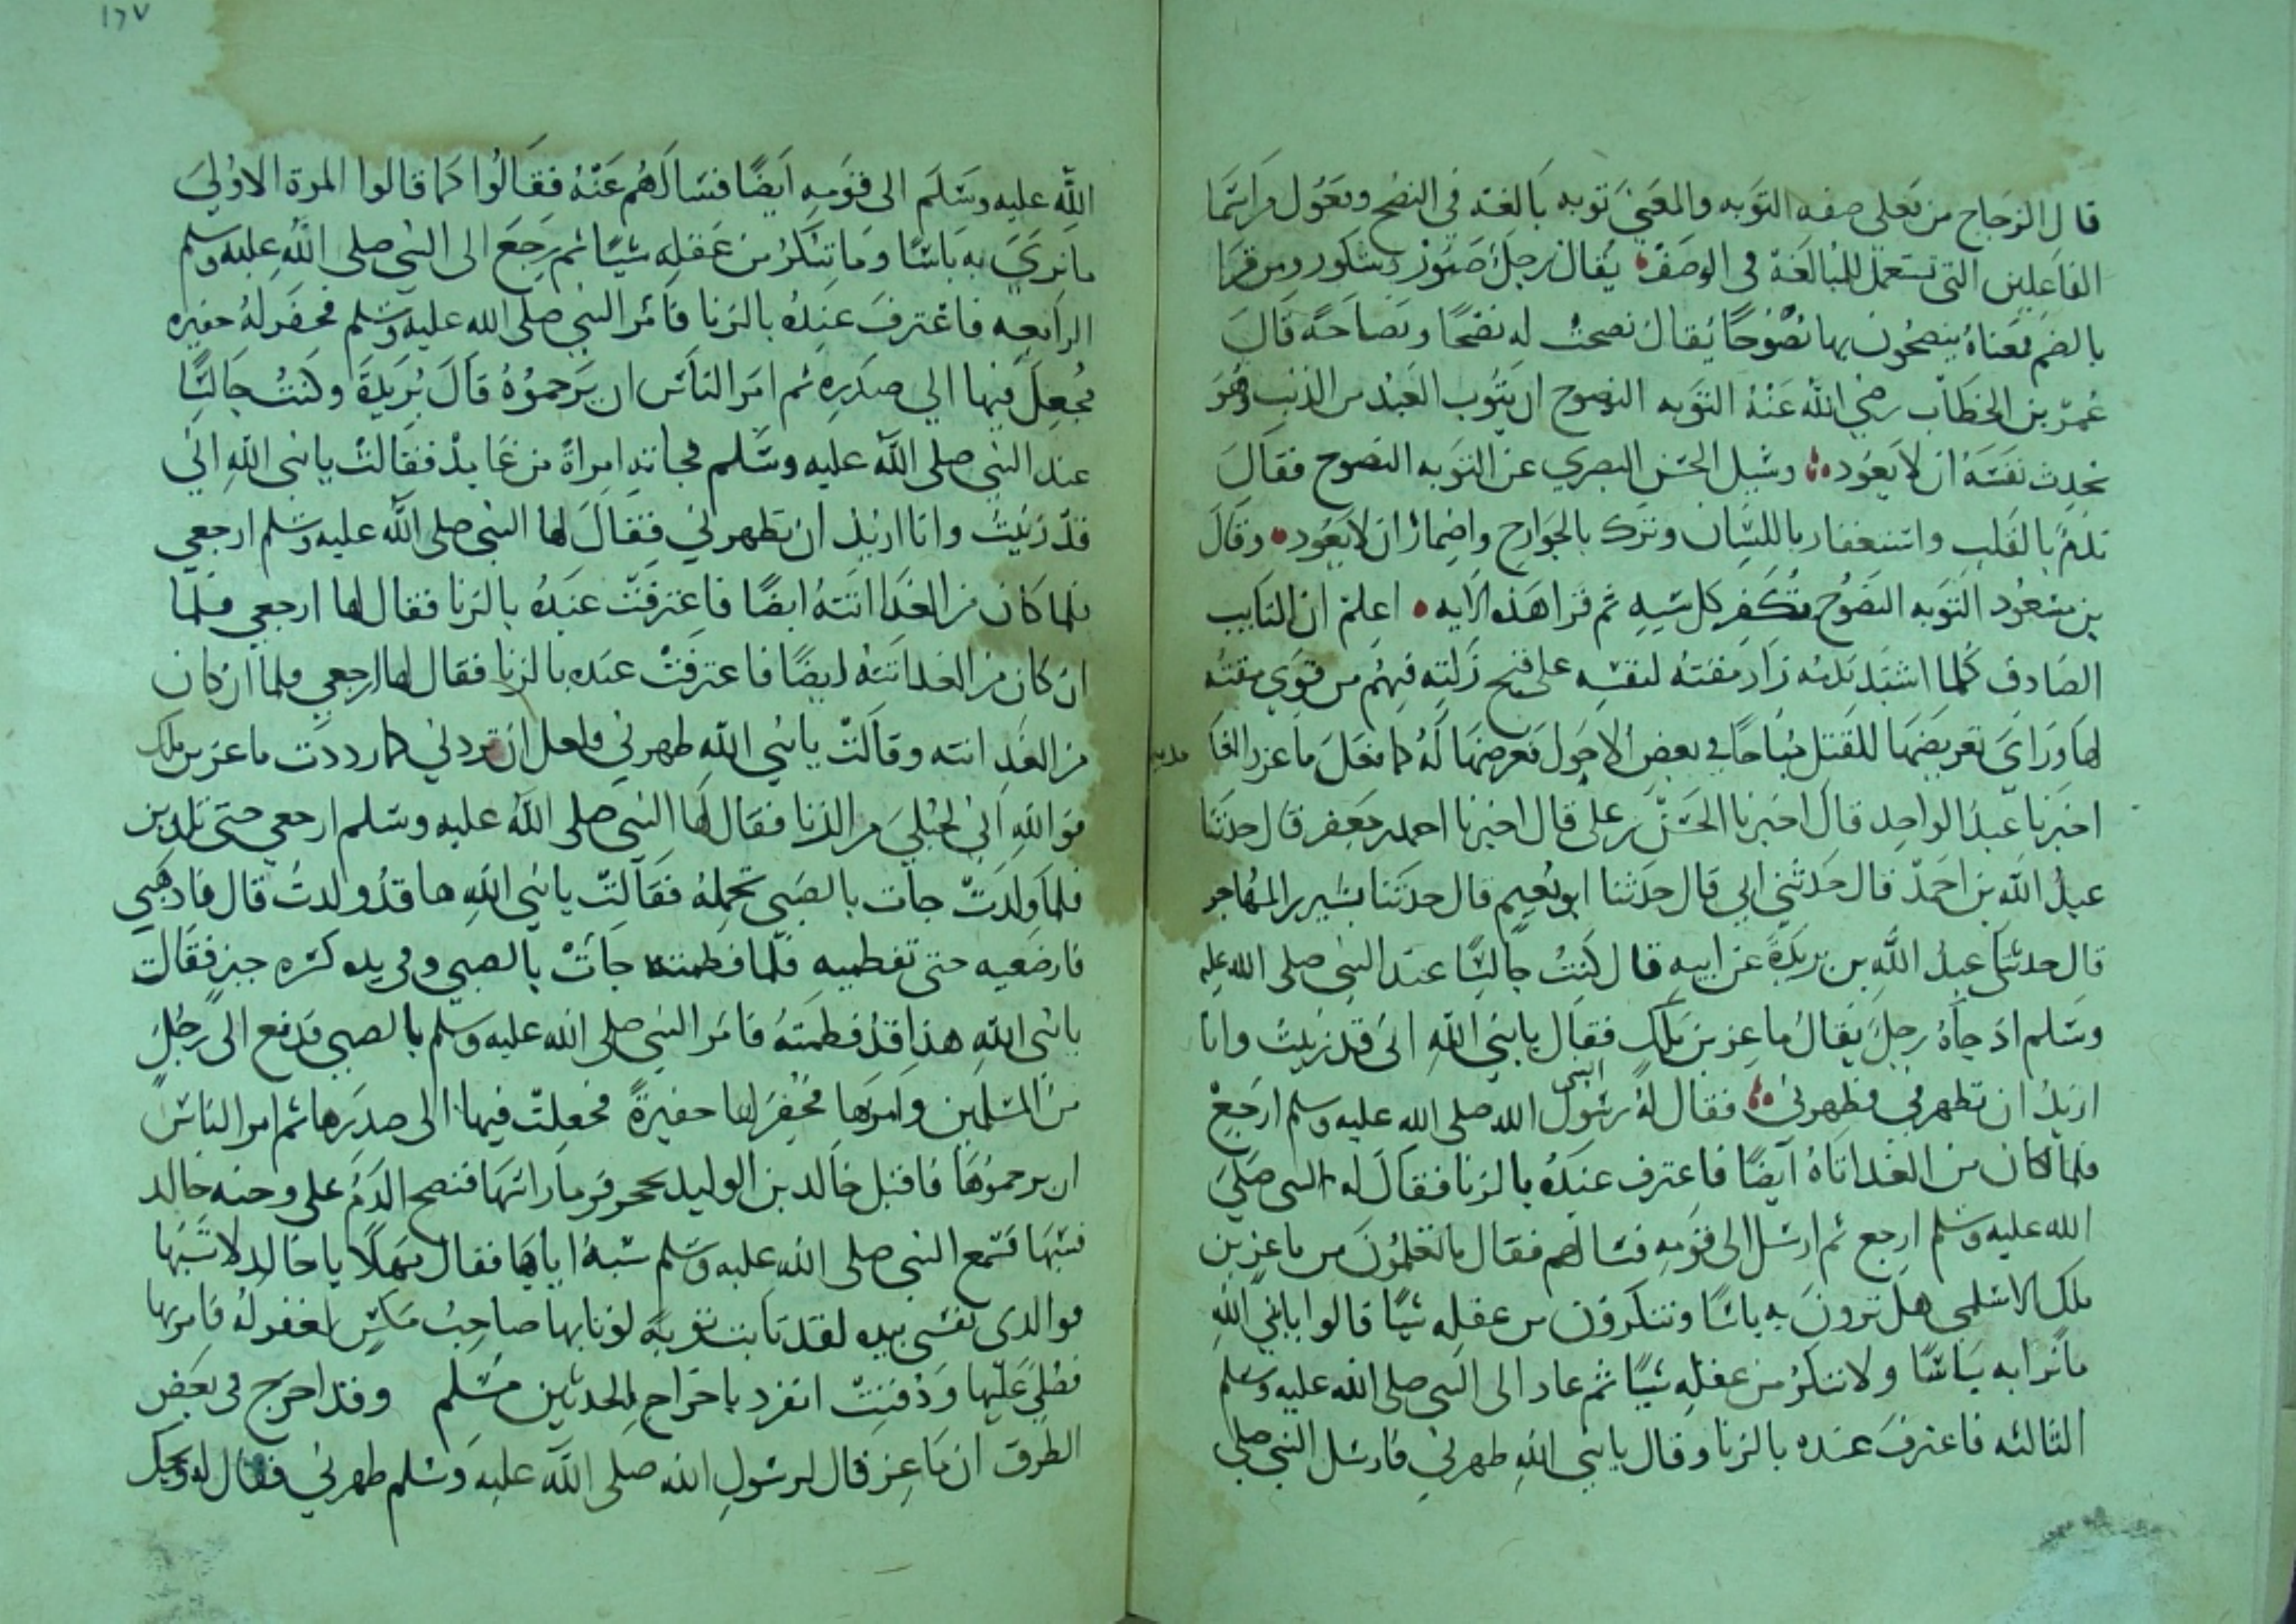 قال الزجاج من فعلى صفه التوبه والمعنى توبه بالغة في النصح وفعول من اسما
الفاعلين التي تستعمل للمبالغة في الوصف يقال رجل صبور وشكور ومن قرا
بالضم فمعناه ينصحون بها نصوحا يقال نصحت له نصحا ونصاحة قال
عمر بن الخطاب رضي الله عنه التوبه النصوح ان يتوب العبد من الذنب وهو
يحدث نفسه ان لا يعود وسيل الحسن البصري عن التوبه النصوح فقال
ندم بالقلب واستغفار باللسان وترك بالجوارح واضمار ان لا يعود وقال
بن مسعود التوبه النصوح تكفر كل سيه ثم قرا هذه الايه اعلم ان التايب
الصادق كلما اشتد ندمه زاد مقته لنفسه على قبح زلته فمنهم من قوي مقته
لها وراى تعريضها للقتل مباحا في بعض الاحول فعرضها له كما فعل ماعز والغا مديه
اخبرنا عبد الواحد قال اخبرنا الحسن بن علي قال اخبرنا احمد بن جعفر قال حدثنا
عبد الله بن احمد قال حدثني ابي قال حدثنا ابو نعيم قال حدثنا بشير بن المهاجر
قال حدثني عبد الله بن بريدة عن ابيه قال كنت جالسا عند النبي صلى الله عليه
وسلم اذ جاه رجل يقال ماعز بن ملك فقال يا نبي الله اني قد زنيت وانا
اريد ان تطهرني فطهرني فقال له رسول النبي الله صلى الله عليه وسلم ارجع
فلما كان من الغد اتاه ايضا فاعترف عنده بالزنا فقال له النبي صلى
الله عليه وسلم ارجع ثم ارسل الى قومه فسالهم فقال ما تعلمون من ماعز بن
ملك الاسلمي هل ترون به باسا وتنكرون من عقله شيا قالوا يا نبي الله
ما نرا به باسا ولا ننكر من عقله شيا ثم عاد الى النبي صلى الله عليه وسلم
الثالثه فاعترف عنده بالزنا وقال يا نبي الله طهرني فارسل النبي صلى
١٦٧
الله عليه وسلم الى قومه ايضا فسالهم عنه فقالوا كما قالوا المرة الاولى
ما نرى به باسا وما ننكر من عقله شيا ثم رجع الى النبي صلى الله عليه وسلم
الرابعه فاعترف عنده بالزنا فامر النبي صلى الله عليه وسلم فحفر له حفيره
فجعل فيها الي صدره ثم امر الناس ان يرجموه قال بريدة وكنت جالسا
عند النبي صلى الله عليه وسلم فجاته امراة من غامد فقالت يا نبي الله اني
قد زنيت وانا اريد ان تطهرني فقال لها النبي صلى الله عليه وسلم ارجعي
فلما كان من الغد اتته ايضا فاعترفت عنده بالزنا فقال لها ارجعي فلما
ان كان من الغد اتته ايضا فاعترفت عنده بالزنا فقال لها ارجعي فلما ان كان
من الغد اتته وقالت يا نبي الله طهرني فلعل ان تردني كما رددت ماعز بن ملك
فوالله اني لحبلى من الزنا فقال لها النبي صلى الله عليه وسلم ارجعي حتى تلدين
فلما ولدت جات بالصبي تحمله فقالت يا نبي الله ها قد ولدت قال فاذهبي
فارضعيه حتى تفطميه فلما فطمته جات بالصبي وفي يده كسره خبز فقالت
يا نبي الله هذا قد فطمته فامر النبي صلى الله عليه وسلم بالصبي فدفع الى رجل
من المسلمين وامر بها فحفر لها حفيرة فجعلت فيها الى صدرها ثم امر الناس
ان يرجموها فاقبل خالد بن الوليد بحجر فرما راسها فنضح الدم على وجنه خالد
فسبها فسمع النبي صلى الله عليه وسلم سبه اياها فقال مهلا يا خالد لا تسبها
فوالذي نفسي بيده لقد تابت توبة لو تابها صاحب مكس لغفر له فامر بها
فصلي عليها ودفنت انفرد باخراج الحديثين مسلم وقد اخرج في بعض
الطرق ان ماعز قال لرسول الله صلى الله عليه وسلم طهرني فقال له ويحك